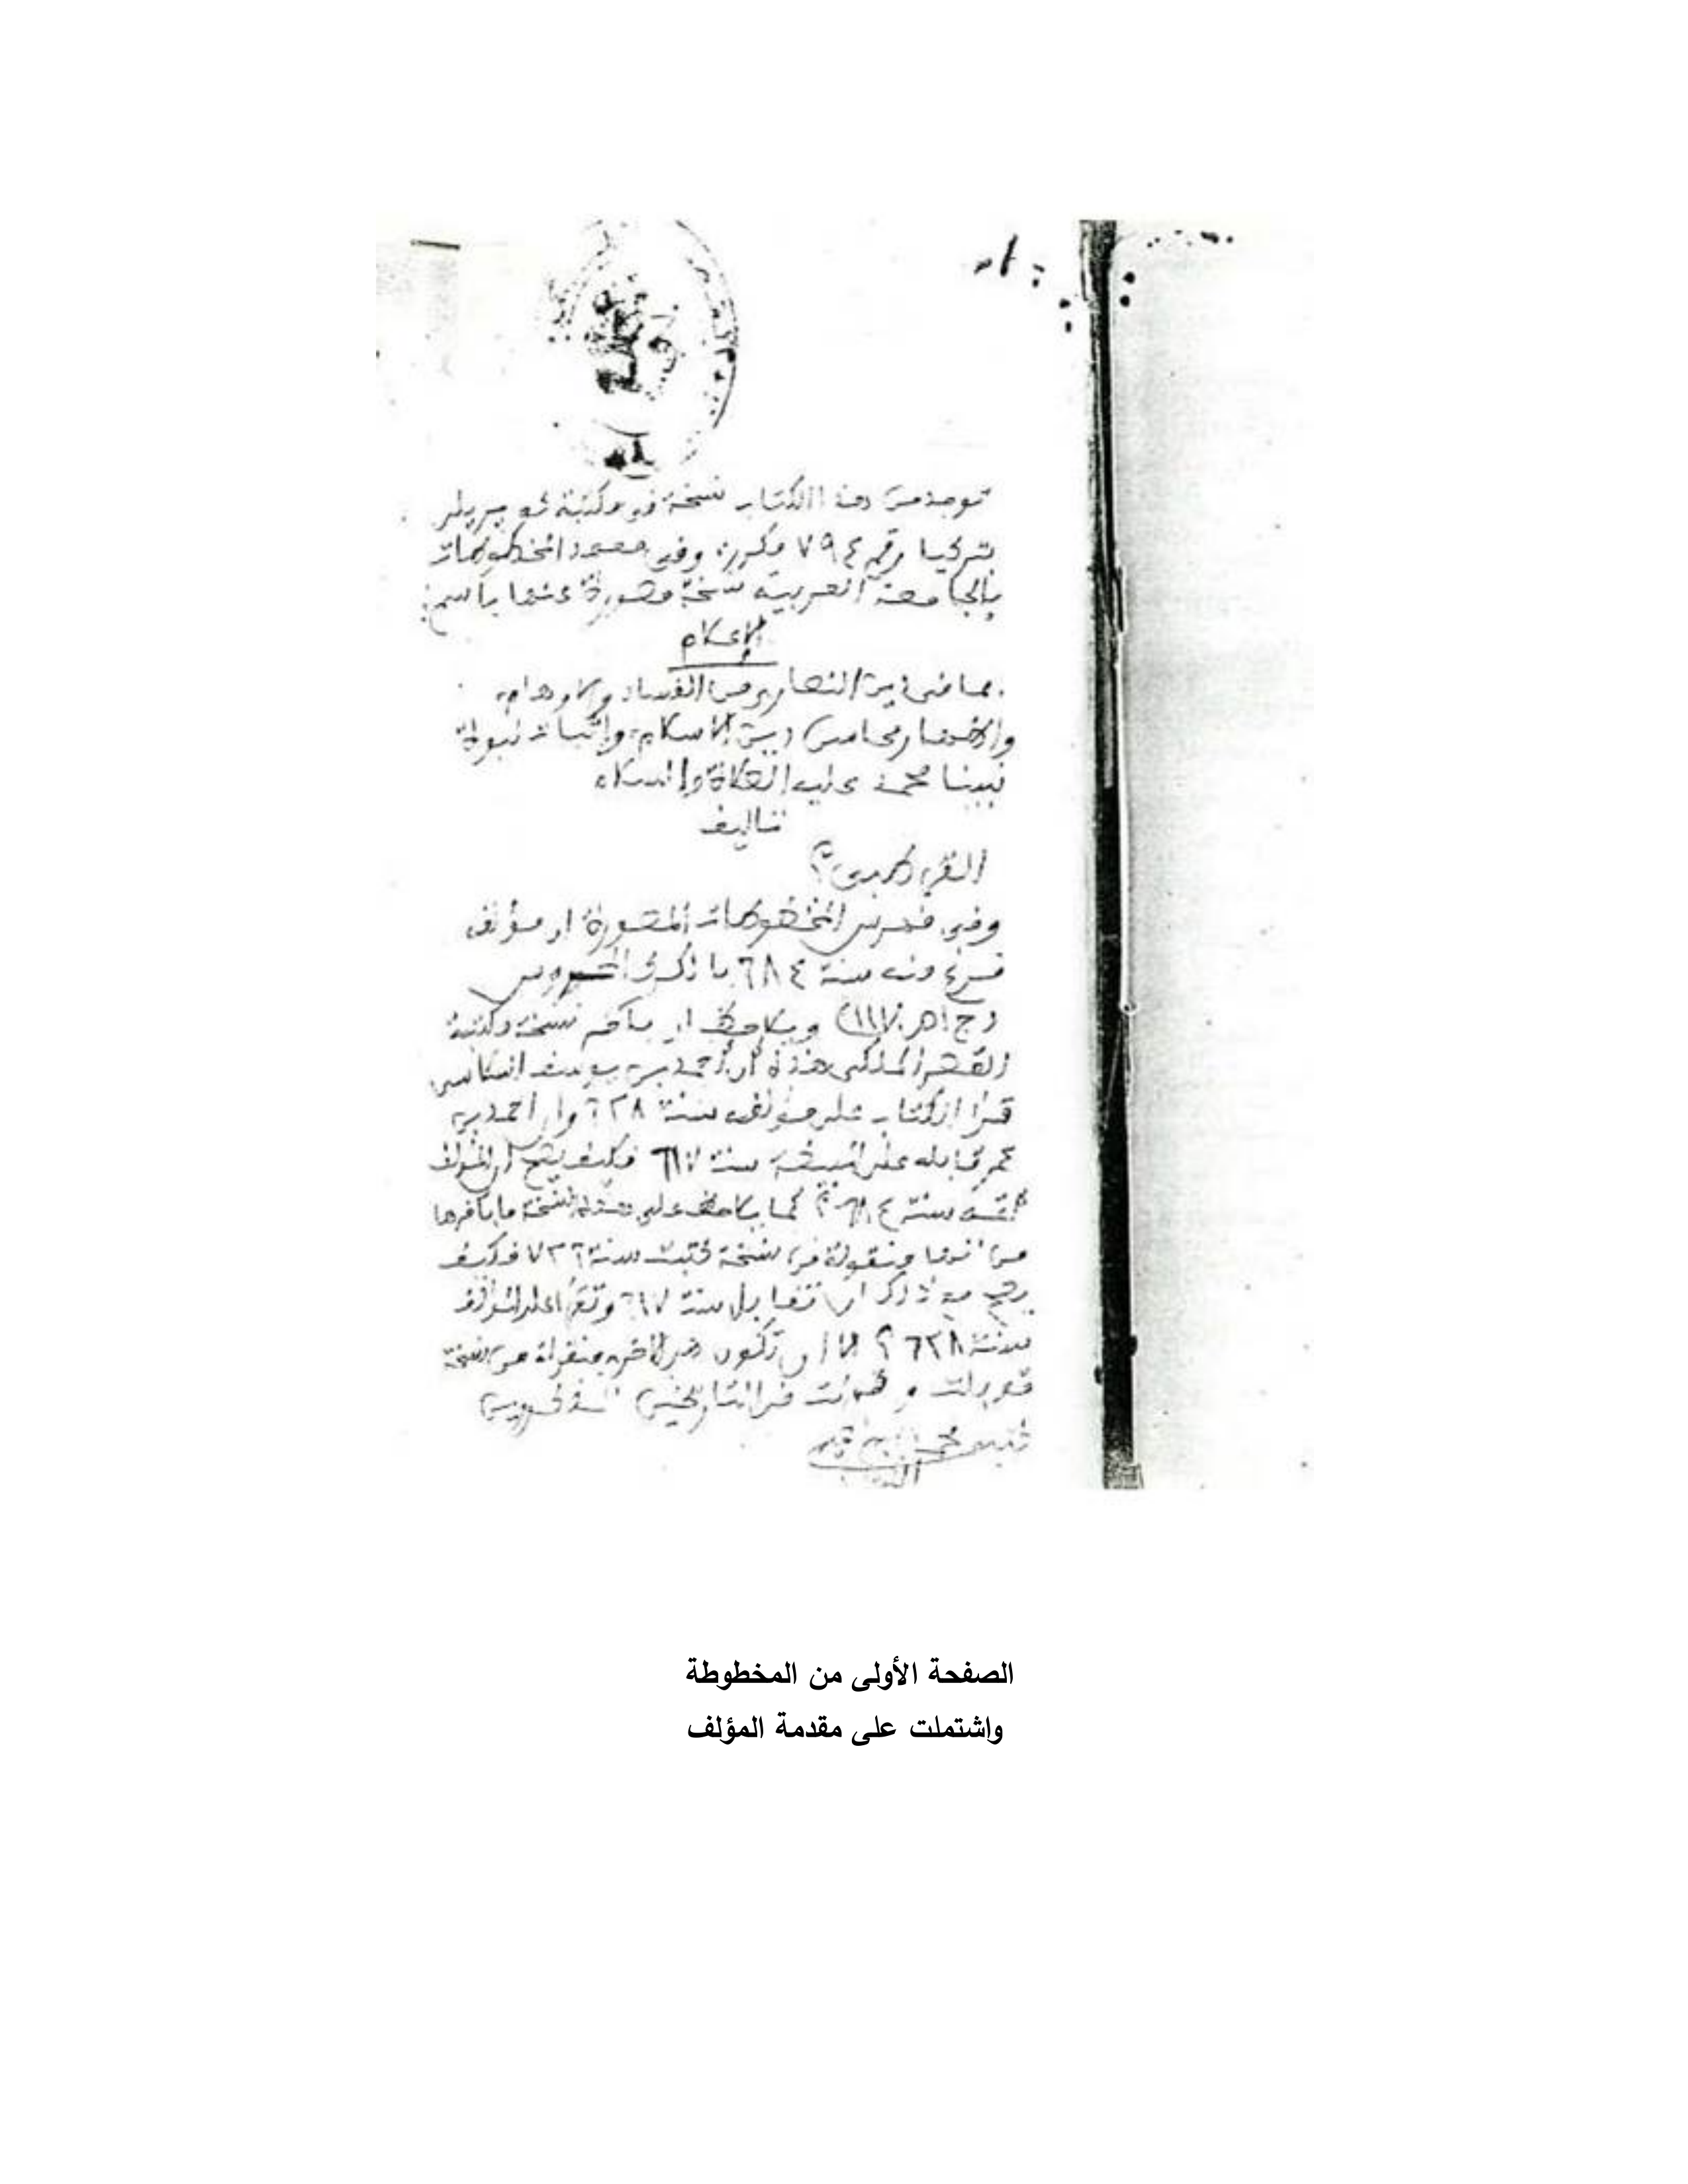 توجد من هذا الكتاب نسخة في مكتبة كوبريلي
بتركيا رقم ٧٩٤ مكرر، وفي معهد المخطوطات
بالجامعة العربية نسخة مصورة عنها باسم:
الإعلام
بما في دين النصارى من الفساد والأوهام،
وإظهار محاسن دين الإسلام، وإثبات نبوة
نبينا محمد عليه الصلاة والسلام
تأليف
القرطبي؟
وفي فهرس المخطوطات المصورة ان مؤلفه
فرغ منه سنة ٦٨٤
ويلاحظ ان بآخر نسخة مكتبة
القصر الملكي هذه أن أحمد بن يوسف
قرأ الكتاب على مؤلفه سنة ٦٢٨ وان احمد بن
عمر قابله على نسخة سنة ٦١٧ فكيف يصح أن المؤلف
سنة ٦٨٤؟ كما يلاحظ على هذه النسخة ما بآخرها
من أنها منقولة من نسخة كتبت سنة ٧٣٦ فكيف
يصح مع ذلك أن تقابل سنة ٦١٧ وتقرأ على المؤلف
سنة ٦٢٨؟ الا ان تكون هي الأخرى منقولة من نسخة
قوبلت وقرئت في التاريخين
محمد
الصفحة الأولى من المخطوطة
واشتملت على مقدمة المؤلف